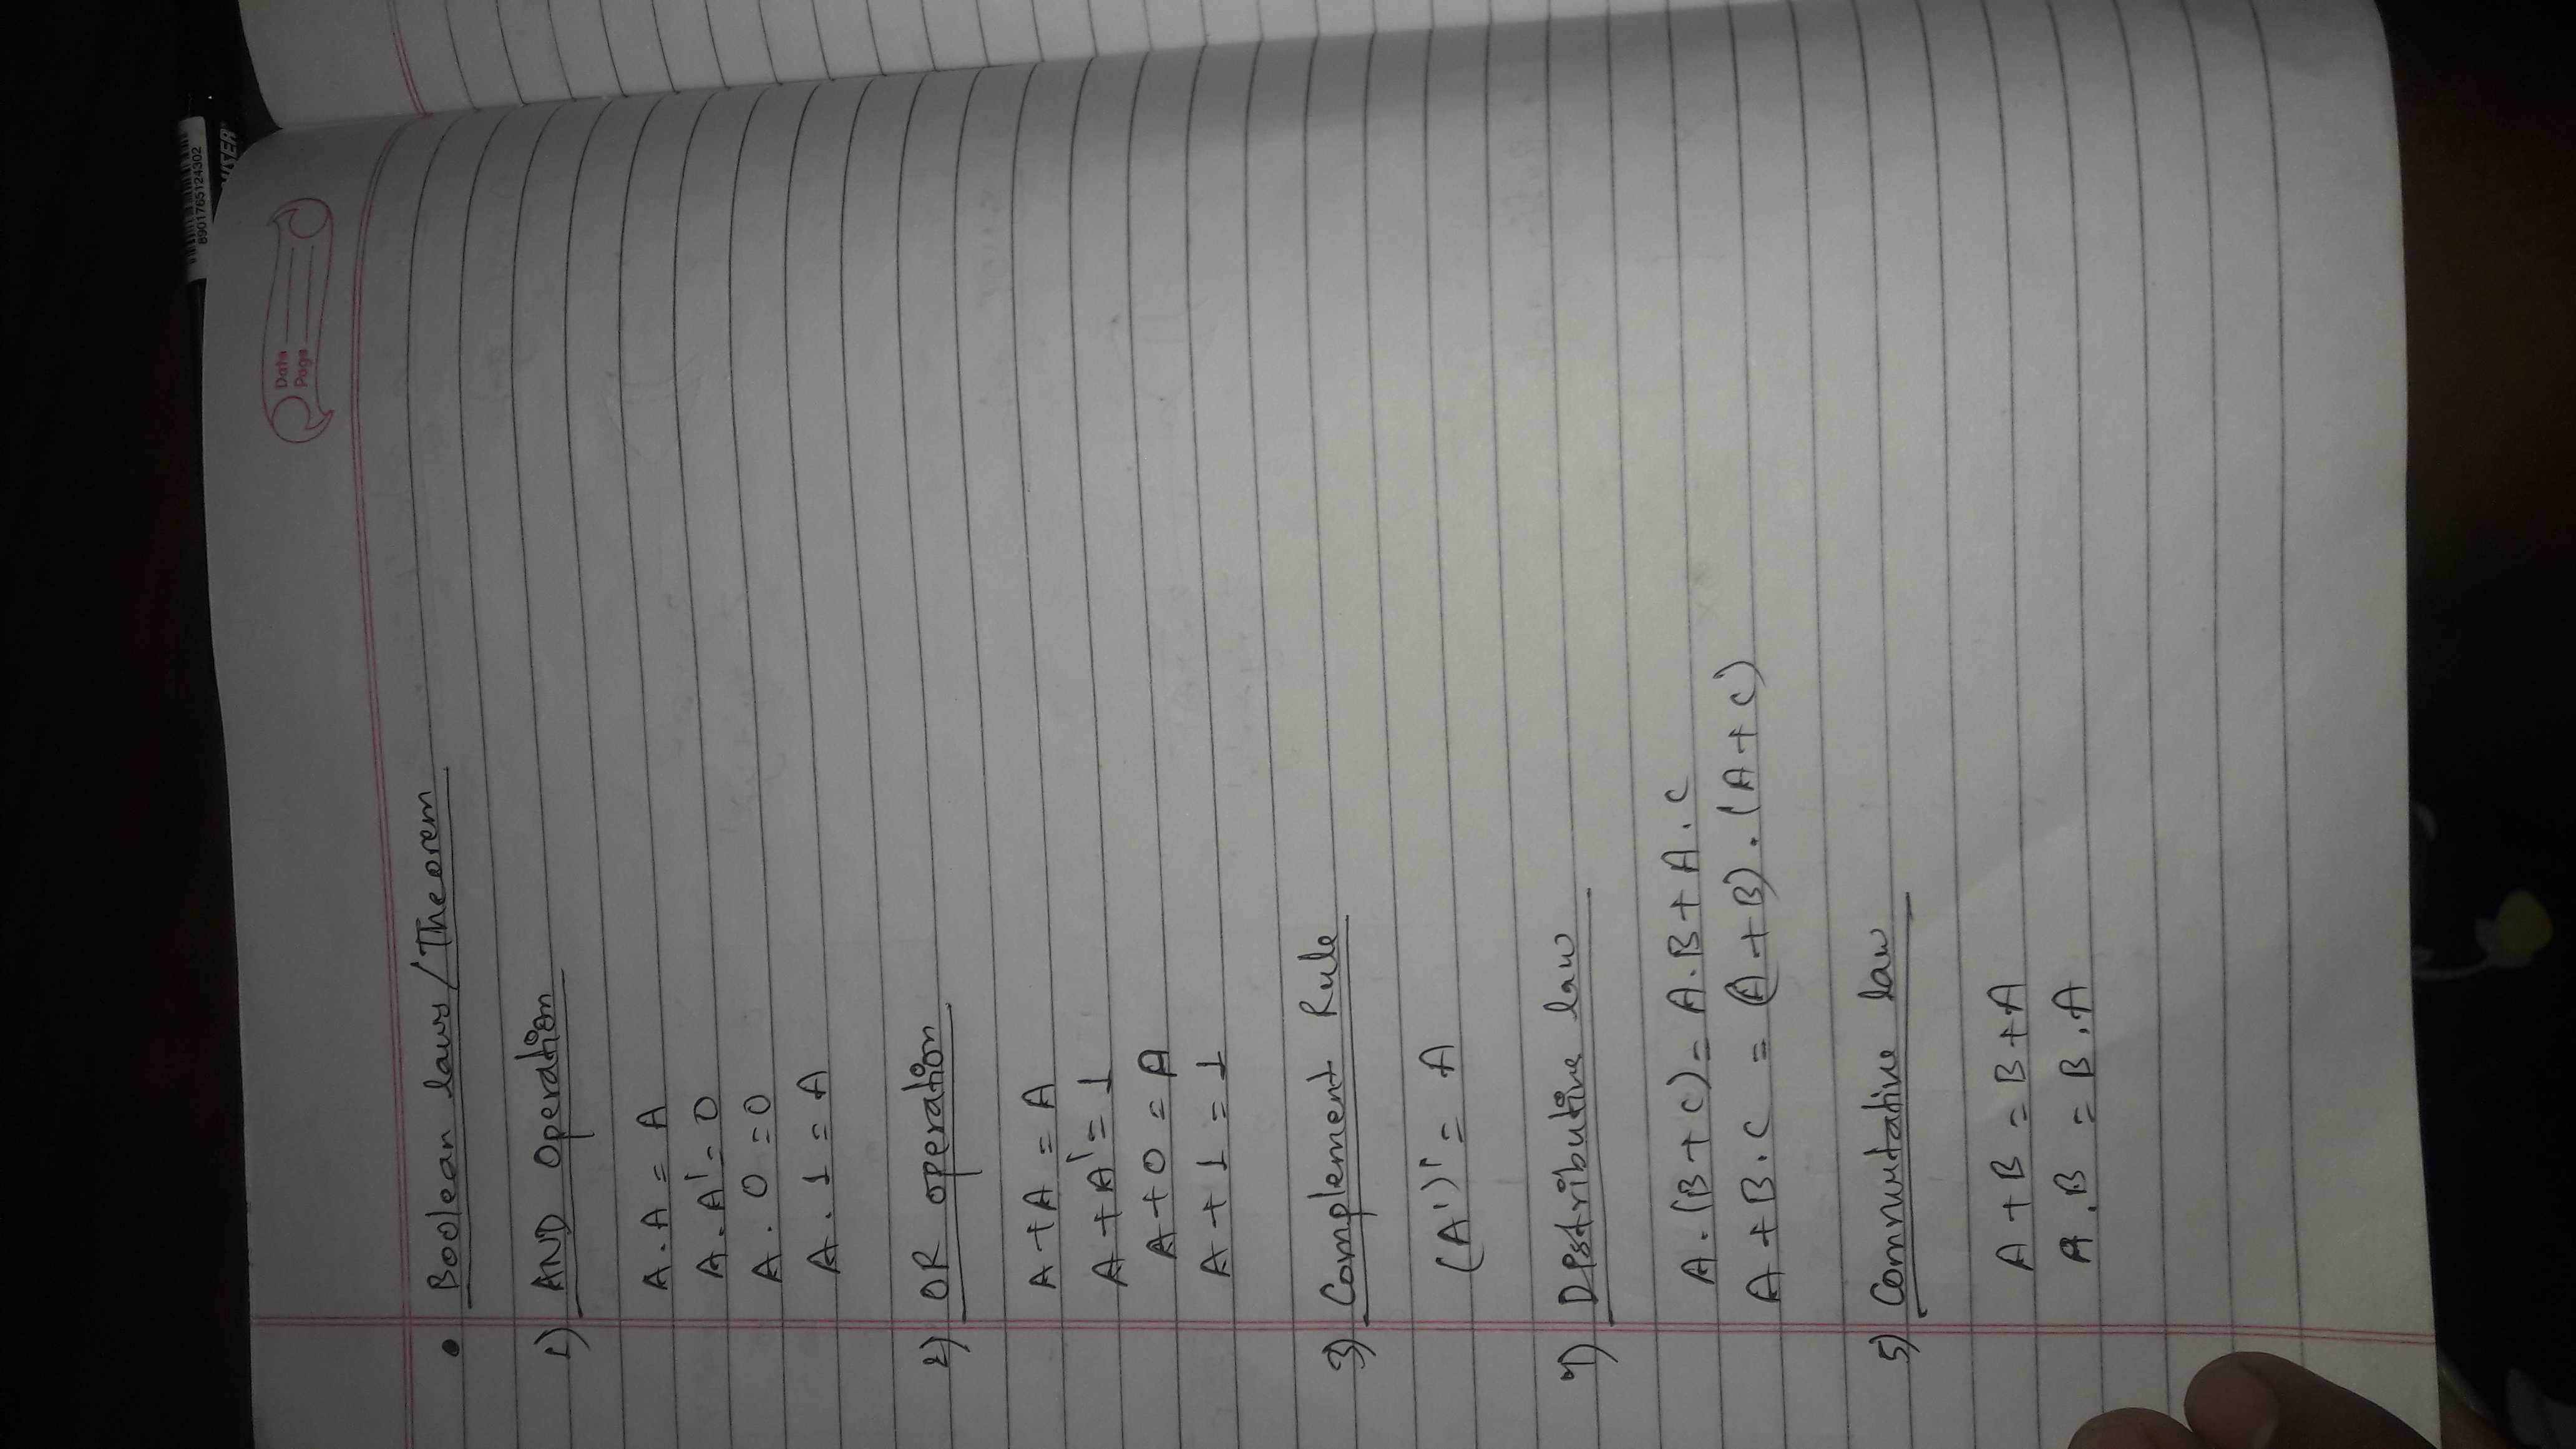 8901765124302
USER
Date
Page
• Boolean laws/Theorem
1) AND Operation
A . A = A
A . A' = 0
A . 0 = 0
A . 1 = A
2) OR operation
A + A = A
A + A' = 1
A + 0 = A
A + 1 = 1
3) Complement Rule
(A')' = A
4) Distributive law
A . (B + C) = A.B + A.C
A + B.C = (A + B) . (A + C)
5) Commutative law
A + B = B + A
A . B = B . A